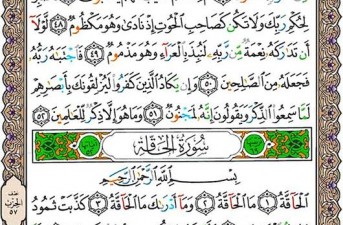 لِحُكْمِ رَبِّكَ وَلَا تَكُن كَصَاحِبِ ٱلْحُوتِ إِذْ نَادَىٰ وَهُوَ مَكْظُومٌ ٤٨ لَّوْلَآ
أَن تَدَٰرَكَهُۥ نِعْمَةٌ مِّن رَّبِّهِۦ لَنُبِذَ بِٱلْعَرَآءِ وَهُوَ مَذْمُومٌ ٤٩ فَٱجْتَبَٰهُ رَبُّهُۥ
فَجَعَلَهُۥ مِنَ ٱلصَّٰلِحِينَ ٥٠ وَإِن يَكَادُ ٱلَّذِينَ كَفَرُوا۟ لَيُزْلِقُونَكَ بِأَبْصَٰرِهِمْ
لَمَّا سَمِعُوا۟ ٱلذِّكْرَ وَيَقُولُونَ إِنَّهُۥ لَمَجْنُونٌ ٥١ وَمَا هُوَ إِلَّا ذِكْرٌ لِّلْعَٰلَمِينَ ٥٢
سُورَةُ الْحَاقَّةِ
بِسْمِ ٱللَّهِ ٱلرَّحْمَٰنِ ٱلرَّحِيمِ
ٱلْحَآقَّةُ ١ مَا ٱلْحَآقَّةُ ٢ وَمَآ أَدْرَىٰكَ مَا ٱلْحَآقَّةُ ٣ كَذَّبَتْ ثَمُودُ
الحزب
٥٧